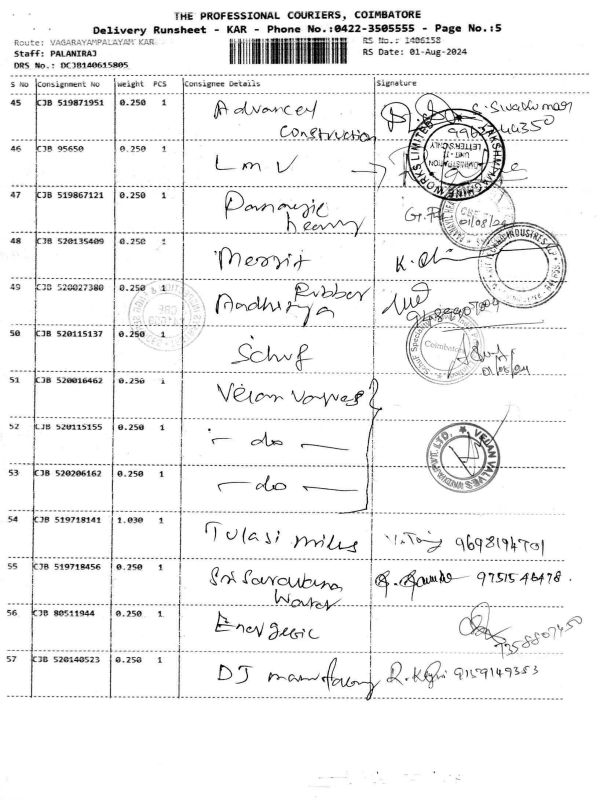 THE PROFESSIONAL COURIERS, COIMBATORE
Delivery Runsheet - KAR - Phone No.:0422-3505555 - Page No.:5
Route: VAGARAYAMPALAYAM KAR
RS No.: 1406158
Staff: PALANIRAJ
RS Date: 01-Aug-2024
DRS No.: DCJB140615805
S No Consignment No Weight PCS Consignee Details Signature
45 CJB 519871951 0.250 1 Advanced Construction
46 CJB 95650 0.250 1 LMV
47 CJB 519867121 0.250 1 heavy
48 CJB 520135409 0.250 1
49 CJB 520027380 0.250 1 Rubber
50 CJB 520115137 0.250 1 Schuf
51 CJB 520016462 0.250 1 Velan Valves
52 CJB 520115155 0.250 1 - do -
53 CJB 520206162 0.250 1 - do -
54 CJB 519718141 1.030 1 Tulasi mills 9698194701
55 CJB 519718456 0.250 1 Sri Saravana Water 9751546478
56 CJB 80511944 0.250 1 Energetic 7358807450
57 CJB 520140523 0.250 1 DJ 9159149353